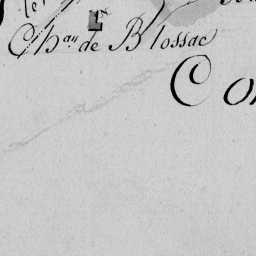 Ch.au de Blossac
Co